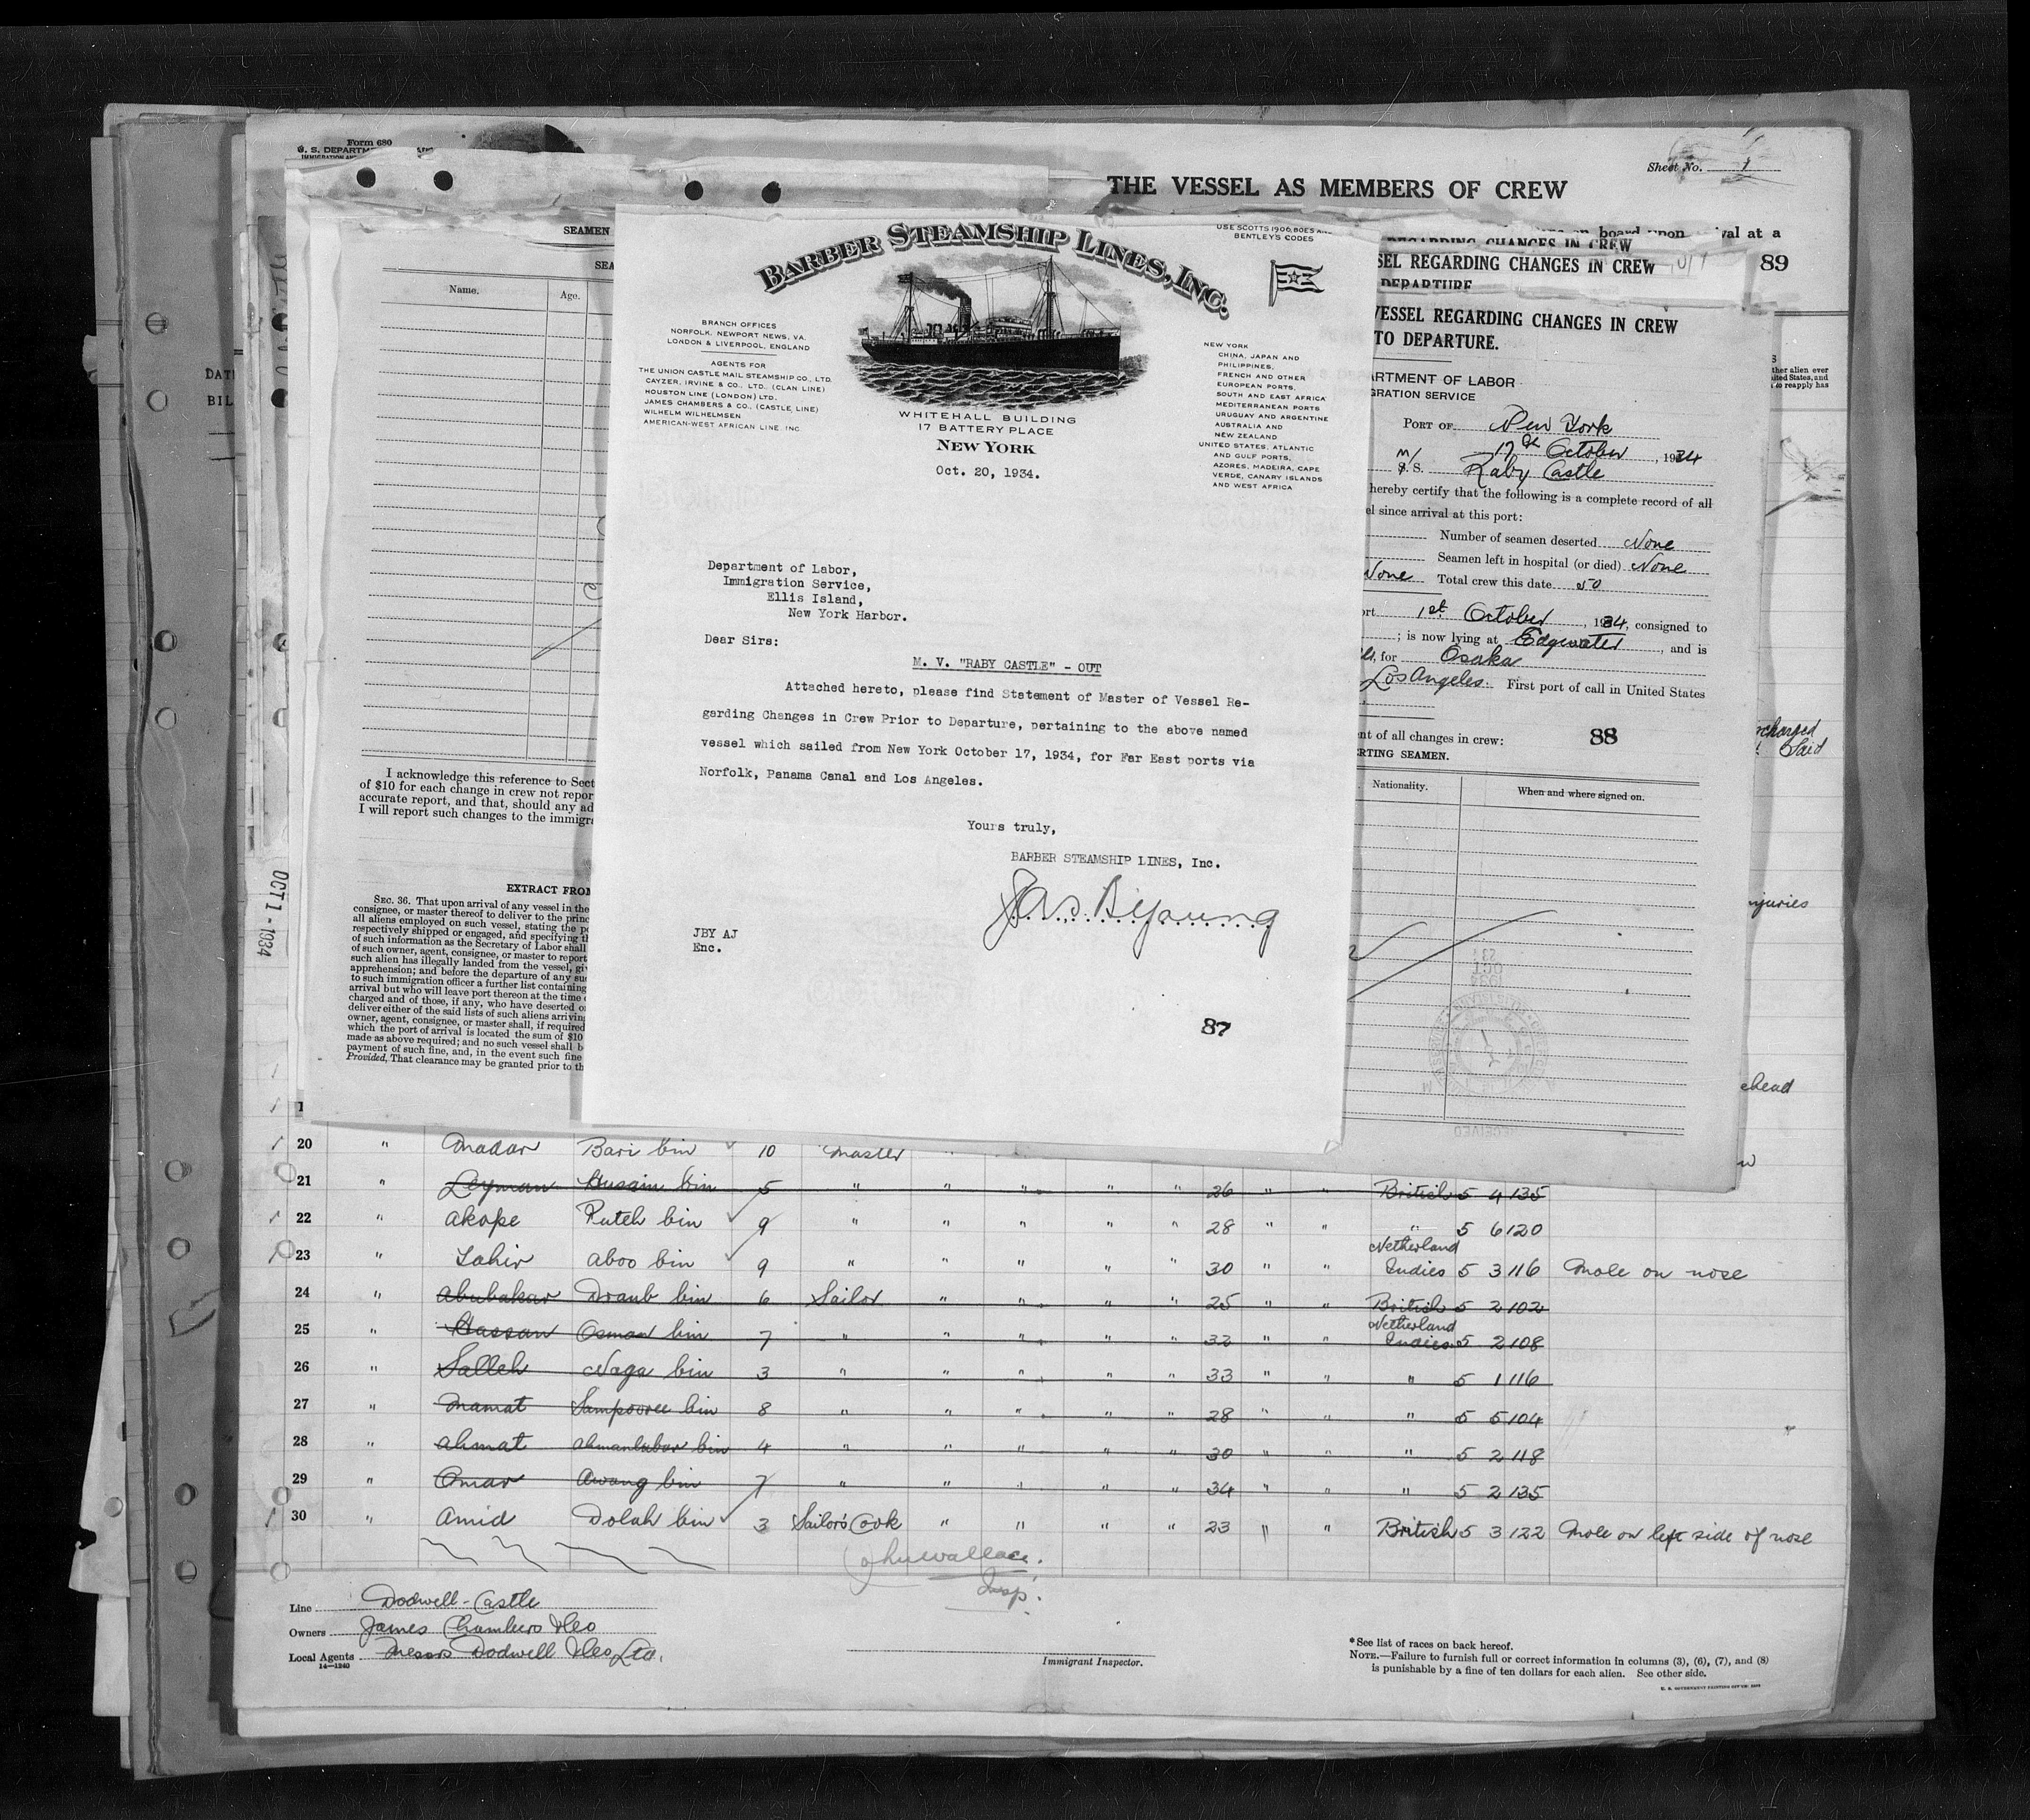 Form 680
U. S. DEPARTM
Sheet No. 1
THE VESSEL AS MEMBERS OF CREW
on board upon
val at a
REGARDING CHANGES IN CREW
SEL REGARDING CHANGES IN CREW
DEPARTURE
89
SEAMEN
SEA
Name.
Age.
I acknowledge this reference to Sect
of $10 for each change in crew not repor
accurate report, and that, should any ad
I will report such changes to the immigra
EXTRACT FROM
SEC. 36. That upon arrival of any vessel in the
consignee, or master thereof to deliver to the princ
all aliens employed on such vessel, stating the po
respectively shipped or engaged, and specifying th
of such information as the Secretary of Labor shall
of such owner, agent, consignee, or master to report
such alien has illegally landed from the vessel, giv
apprehension; and before the departure of any suc
to such immigration officer a further list containing
arrival but who will leave port thereon at the time o
charged and of those, if any, who have deserted or
deliver either of the said lists of such aliens arriving
owner, agent, consignee, or master shall, if required
which the port of arrival is located the sum of $10
made as above required; and no such vessel shall b
payment of such fine, and, in the event such fine
Provided, That clearance may be granted prior to th
OCT 1 - 1934
DAT
BIL
BARBER STEAMSHIP LINES, INC.
USE SCOTTS 1906, BOES AN
BENTLEY'S CODES
BRANCH OFFICES
NORFOLK, NEWPORT NEWS, VA.
LONDON & LIVERPOOL, ENGLAND
AGENTS FOR
THE UNION CASTLE MAIL STEAMSHIP CO., LTD.
CAYZER, IRVINE & CO., LTD. (CLAN LINE)
HOUSTON LINE (LONDON) LTD.
JAMES CHAMBERS & CO., (CASTLE LINE)
WILHELM WILHELMSEN
AMERICAN-WEST AFRICAN LINE, INC.
NEW YORK
CHINA, JAPAN AND
PHILIPPINES,
FRENCH AND OTHER
EUROPEAN PORTS,
SOUTH AND EAST AFRICA
MEDITERRANEAN PORTS
URUGUAY AND ARGENTINE
AUSTRALIA AND
NEW ZEALAND
UNITED STATES, ATLANTIC
AND GULF PORTS,
AZORES, MADEIRA, CAPE
VERDE, CANARY ISLANDS
AND WEST AFRICA
WHITEHALL BUILDING
17 BATTERY PLACE
NEW YORK
Oct. 20, 1934.
Department of Labor,
Immigration Service,
Ellis Island,
New York Harbor.
Dear Sirs:
M. V. "RABY CASTLE" - OUT
Attached hereto, please find Statement of Master of Vessel Re-
garding Changes in Crew Prior to Departure, pertaining to the above named
vessel which sailed from New York October 17, 1934, for Far East ports via
Norfolk, Panama Canal and Los Angeles.
Yours truly,
BARBER STEAMSHIP LINES, Inc.
Jas. B. Young
JBY AJ
Enc.
87
VESSEL REGARDING CHANGES IN CREW
TO DEPARTURE.
ARTMENT OF LABOR
GRATION SERVICE
PORT OF New York
17th October, 1934
M/ S. S. Raby Castle
hereby certify that the following is a complete record of all
el since arrival at this port:
Number of seamen deserted None
Seamen left in hospital (or died) None
None Total crew this date 50
ort 1st October, 1934, consigned to
; is now lying at Edgewater, and is
for Osaka
Los Angeles. First port of call in United States
nt of all changes in crew:
88
RTING SEAMEN.
Nationality.
When and where signed on.
ther alien ever
ited States, and
to reapply has
charged
Said
njuries
ehead
20 " Madar Bari bin 10 Master
21 " Leyman Husain bin 5 " " " " " 26 " " British 5 4 135
22 " Akope Puteh bin 9 " " " " " 28 " " " 5 6 120
23 " Tahir Aboo bin 9 " " " " " 30 " " Netherland Indies 5 3 116 Mole on nose
24 " Abubakar Draub bin 6 Sailor " " " " 25 " " British 5 2 102
25 " Hassan Osman bin 7 " " " " " 32 " " Netherland Indies 5 2 108
26 " Salleh Naga bin 3 " " " " " 33 " " " 5 1 116
27 " Mamat Sampooree bin 8 " " " " " 28 " " " 5 5 104
28 " Ahmat Ahmanlubar bin 4 " " " " " 30 " " " 5 2 118
29 " Omar Awang bin 7 " " " " " 34 " " " 5 2 135
30 " Amid Dolah bin 3 Sailor's Cook " " " " 23 " " British 5 3 122 Mole on left side of nose
John Wallace.
Insp.
Line Dodwell-Castle
Owners James Chambers & Co
Local Agents Messrs Dodwell & Co, Ltd.
14—1240
Immigrant Inspector.
*See list of races on back hereof.
NOTE.—Failure to furnish full or correct information in columns (3), (6), (7), and (8)
is punishable by a fine of ten dollars for each alien. See other side.